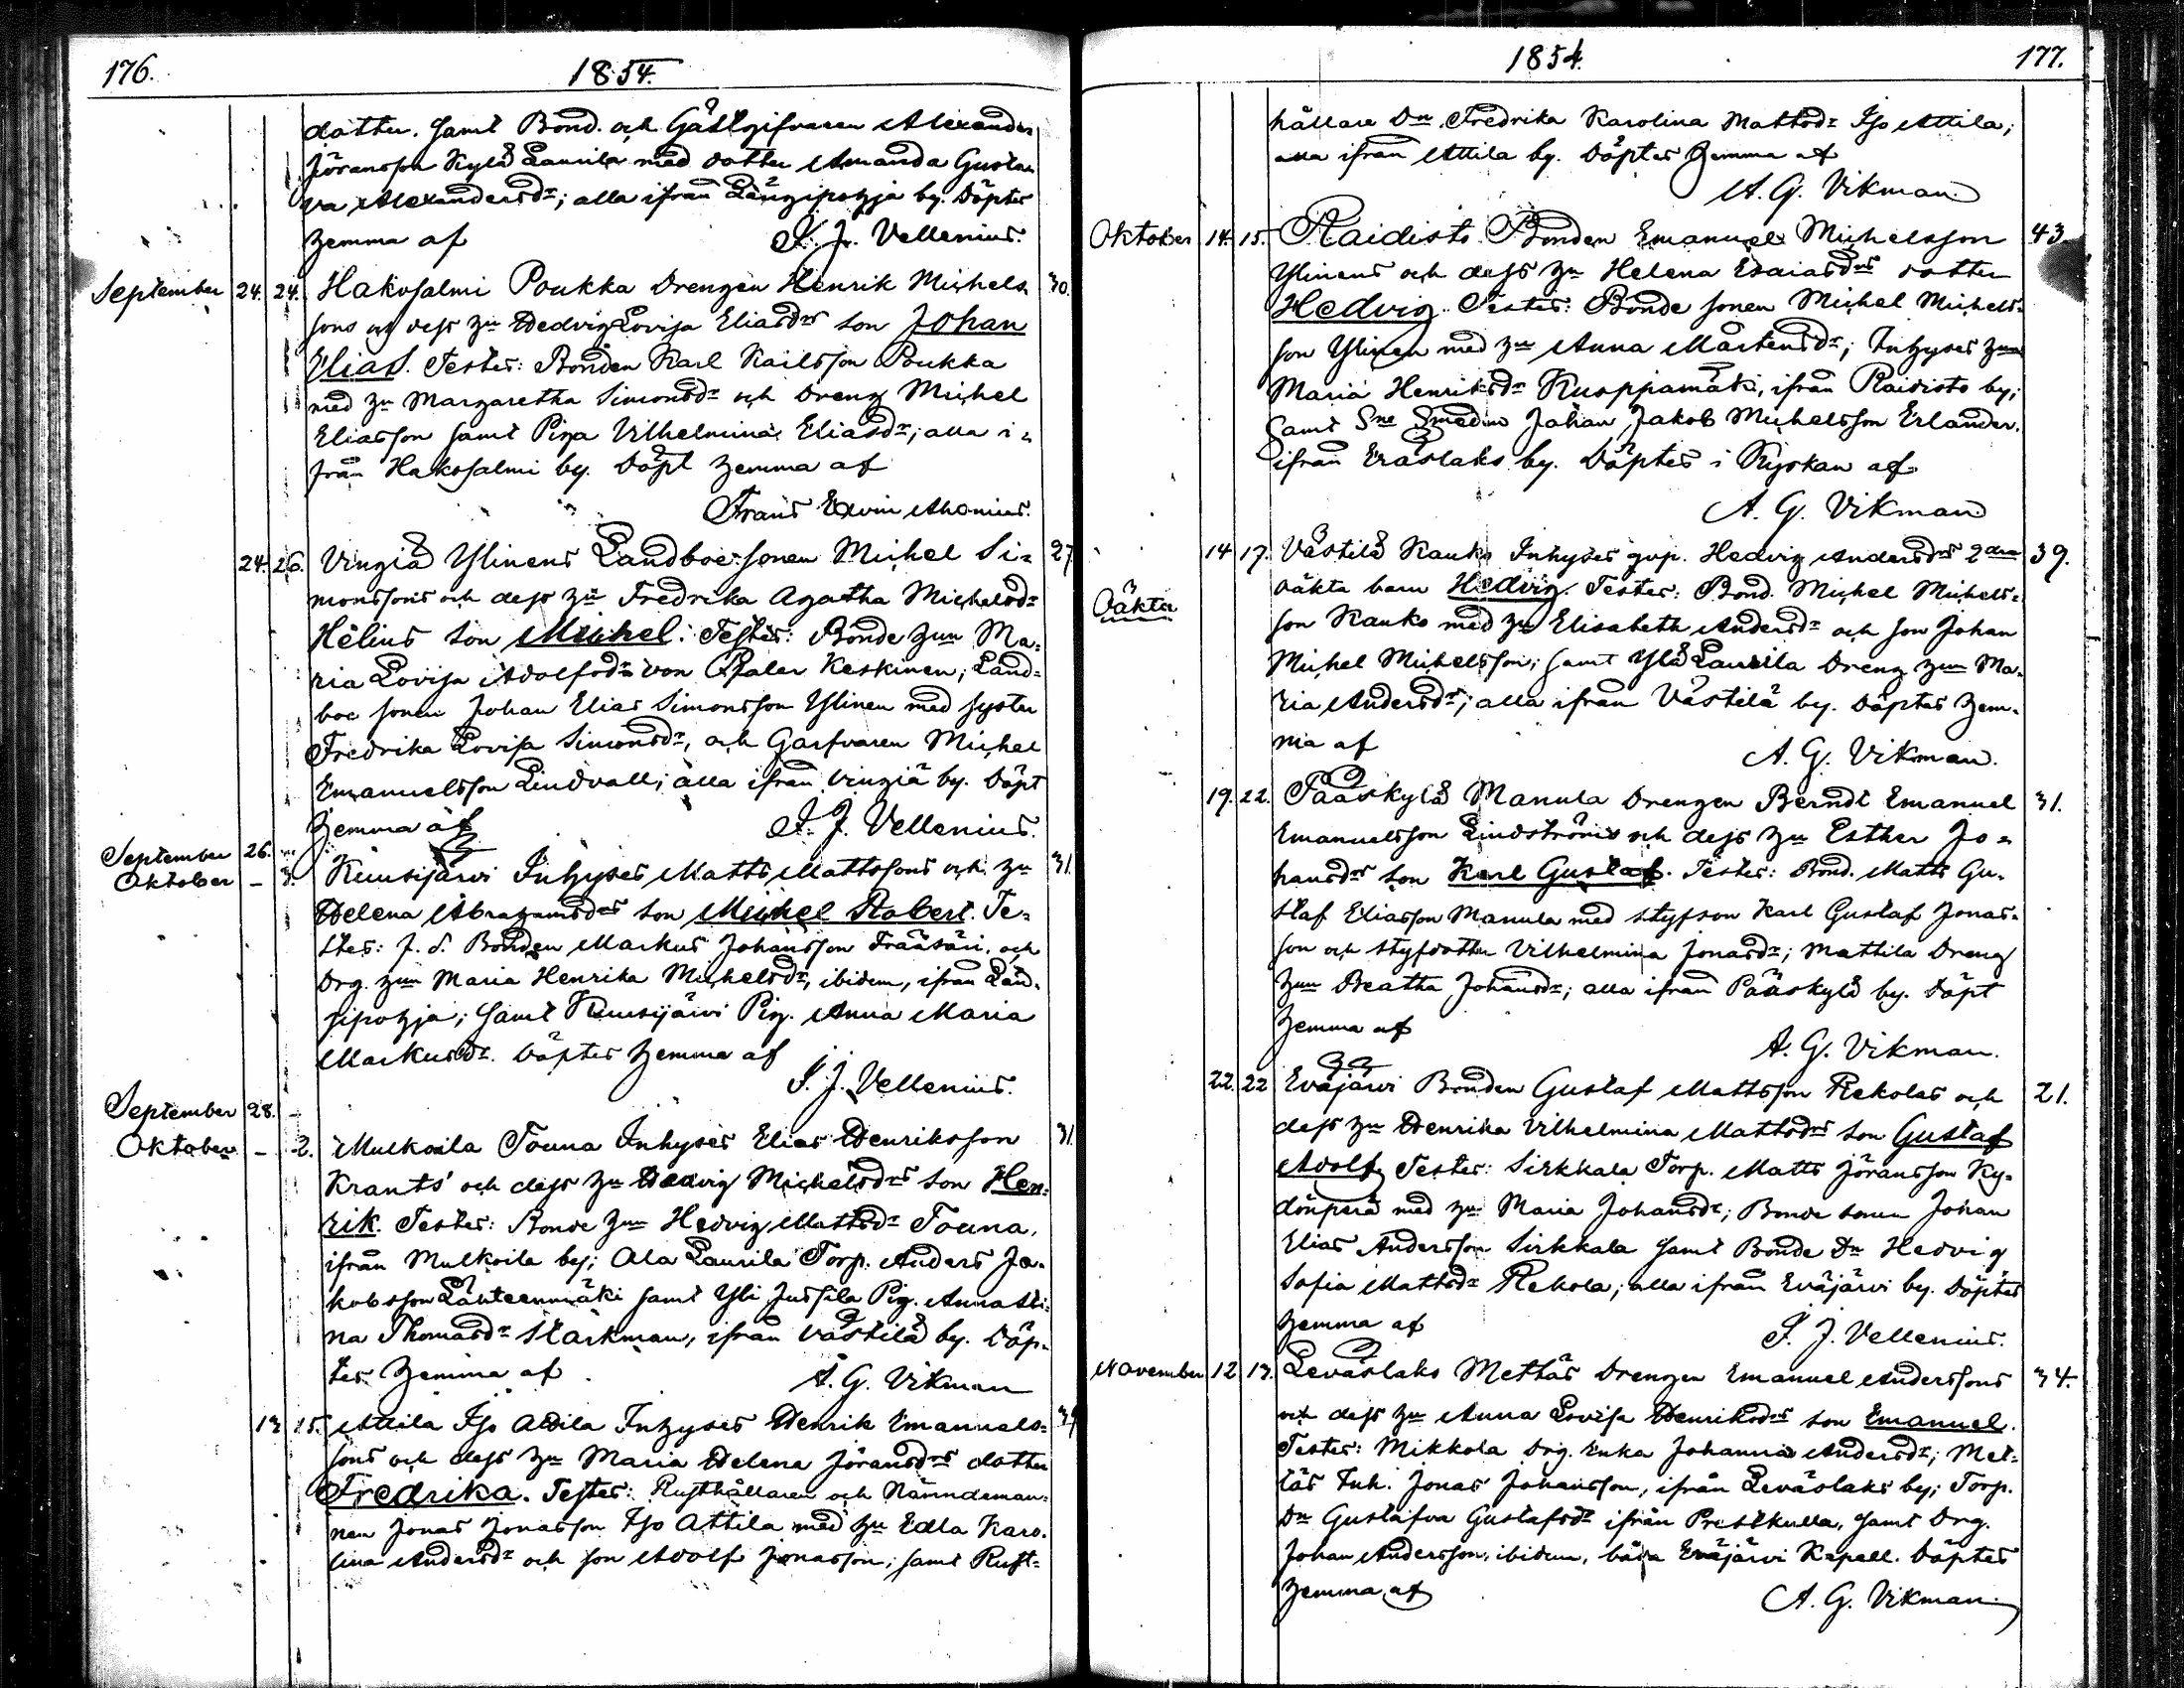 176. 1854.
dotter. samt Bond. och Gästgifvaren Alexander
Jöransson Kylä Laurila med dotter Amanda Gusta-
va Alexandersdr; alla ifrån Längipohja by. Döptes
hemma af J. J. Vellenius.
September 24. 24. Hakosalmi Poukka Drengen Henrik Michels- 30.
sons och dess hu Hedvig Lovisa Eliasdrs son Johan
Elias. Testes: Bonden Karl Karlsson Poukka
med hu Margaretha Simonsdr och Dreng Michel
Eliasson samt Piga Vilhelmina Eliasdr; alla i-
från Hakosalmi by. Döpt hemma af
Frans Edvin Ahonius.
24. 26. Vingiä Ylinens Landboe-sonen Michel Si- 27
monssons och dess hu Fredrika Agatha Michelsdr
Helius son Michel. Testes: Bonde hun Ma-
ria Lovisa Adolfsdr von Qvalen Keskinen; Land-
boe sonen Johan Elias Simonsson Ylinen med syster
Fredrika Lovisa Simonsdr, och Garfvaren Michel
Emanuelsson Lindvall; alla ifrån Vingiä by. Döpt
hemma af J. J. Vellenius.
September 26. -
Oktober - 3. Kuusijärvi Inhyses Matts Mattssons och hu 31.
Helena Abrahamsdrs son Michel Robert. Te-
stes: f. d. Bonden Markus Johansson Trääsäri, och
Drg. hun Maria Henrika Michelsdr, ibidem, ifrån Län-
gipohja; samt Kuusijärvi Pig. Anna Maria
Markusdr. Döptes hemma af
J. J. Vellenius.
September 28. -
Oktober - 2. Mulkoila Touna Inhyses Elias Henriksson 31
Krants' och dess hu Hedvig Michelsdrs son Hen-
rik. Testes: Bonde hun Hedvig Mattsdr Touna,
ifrån Mulkoila by; Ala Laurila Torp. Anders Ja-
kobsson Lähteenmäki samt Yli Jussila Pig. Anna Sti-
na Thomasdr Starkman, ifrån Västilä by. Döp-
tes hemma af A. G. Vikman
13 15. Attila Iso Attila Inhyses Henrik Emanuels- 39
sons och dess hu Maria Helena Jöransdrs dotter
Fredrika. Testes: Rusthållaren och Nämndeman-
nen Jonas Jonasson Iso Attila med hu Edla Karo-
lina Andersdr och son Adolf Jonasson; samt Rust-
1854. 177.
hållare Dn Fredrika Karolina Mattsdr Iso Attila;
alla ifrån Attila by. Döptes hemma af
A. G. Vikman
Oktober 14. 15. Raidisto Bonden Emanuel Michelsson 43
Ylinens och dess hu Helena Esaiasdrs dotter
Hedvig. Testes: Bonde sonen Michel Michels-
son Ylinen med hu Anna Mårtensdr; Inhyses hun
Maria Henriksdr Kuoppamäki, ifrån Raidisto by;
samt Sne Smeden Johan Jakob Michelsson Erlander.
ifrån Eräslaks by. Döptes i Kyrkan af
A. G. Vikman
14 17. Västilä Kauko Inhyses qvp. Hedvig Andersdrs 2dra 39.
Oäkta oäkta barn Hedvig. Testes: Bond. Michel Michels-
son Kauko med hu Elisabeth Andersdr och son Johan
Michel Michelsson; samt Ylä Laurila Dreng hun Ma-
ria Andersdr; alla ifrån Västilä by. Döptes hem-
ma af A. G. Vikman.
19. 22. Pääskylä Manula Drengen Berndt Emanuel 31.
Emanuelsson Lindströms och dess hu Esther Jo-
hansdrs son Karl Gustaf. Testes: Bond. Matts Gu-
staf Eliasson Manula med styfson Karl Gustaf Jonas-
son och styfdotter Vilhelmina Jonasdr; Mattila Dreng
hun Beatha Johansdr; alla ifrån Pääskylä by. Döpt
hemma af
A. G. Vikman.
22. 22 Eväjärvi Bonden Gustaf Mattsson Rekolas och 21.
dess hu Henrika Vilhelmina Mattsdrs son Gustaf
Adolf. Testes: Sirkkala Torp. Matts Jöransson Ky-
dönperä med hu Maria Johansdr; Bonde sonen Johan
Elias Andersson Sirkkala samt Bonde Dn Hedvig
Sofia Mattsdr Rekola; alla ifrån Eväjärvi by. Döptes
hemma af J. J. Vellenius.
November 12 13. Leväslaks Mettäs Drengen Emanuel Anderssons 34.
och dess hu Anna Lovisa Henriksdrs son Emanuel.
Testes: Mikkola Drg. Enka Johanna Andersdr; Met-
täs Inh. Jonas Johansson, ifrån Leväslaks by; Torp.
Dn Gustafva Gustafsdr ifrån Prestkulla, samt Drg.
Johan Andersson, ibidem, båda Eväjärvi Kapell. Döptes
hemma af A. G. Vikman.